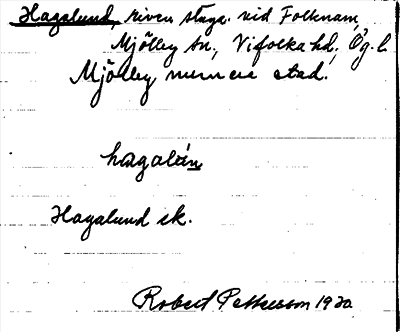 Hagalund, riven stuga vid Folknam,
Mjölby sn., Vifolka hd., Ög. l.
Mjölby numera stad.
hagalún
Hagalund ek.
Robert Pettersson 1920